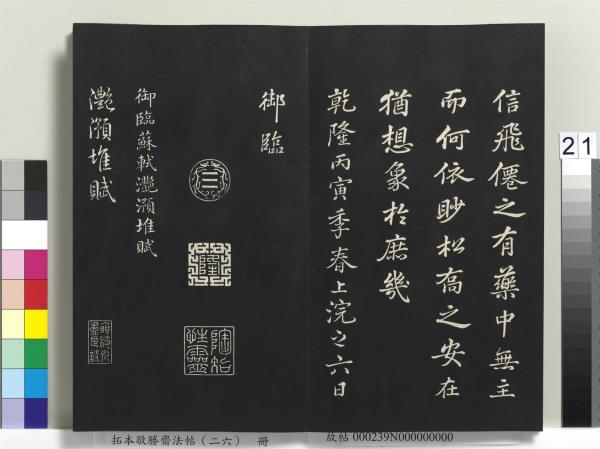 信飛僊之有藥中無主
而何依眇松高之安在
猶想象於庶幾
乾隆丙寅季春上浣之六日
御臨
乾
隆
陶冶性靈
御臨蘇軾灔澦堆賦
灔澦堆賦
21
拓本敬勝齋法帖（二六） 冊
故帖 000239N000000000